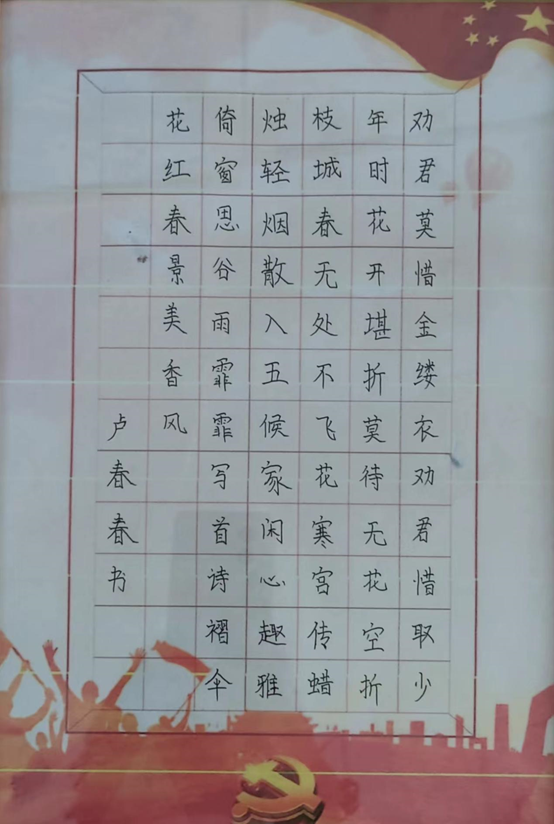 劝君莫惜金缕衣劝君惜取少
年时花开堪折莫待无花空折
枝城春无处不飞花寒宫传蜡
烛轻烟散入五候家闲心趣雅
倚窗思谷雨霏霏写首诗褶伞
花红春景美香风
卢春春书